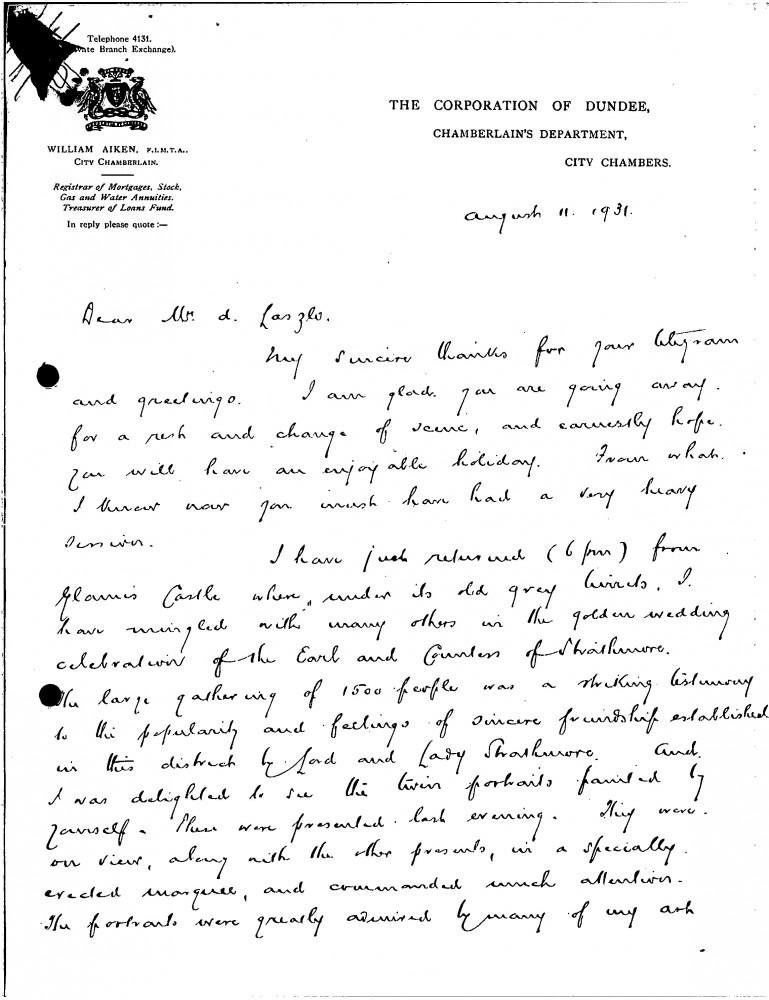 Telephone 4131.
(Private Branch Exchange).
WILLIAM AIKEN, F.I.M.T.A.,
CITY CHAMBERLAIN.
Registrar of Mortgages, Stock,
Gas and Water Annuities.
Treasurer of Loans Fund.
In reply please quote :—
THE CORPORATION OF DUNDEE,
CHAMBERLAIN'S DEPARTMENT,
CITY CHAMBERS.
August 11. 1931.
Dear Mr. d. Laszlo.
My sincere thanks for your telegram
and greetings. I am glad you are going away
for a rest and change of scene, and earnestly hope
you will have an enjoyable holiday. From what
I know now you must have had a very heavy
session.
I have just returned (6 pm) from
Glamis Castle where, under its old grey turrets, I
have mingled with many others in the golden wedding
celebration of the Earl and Countess of Strathmore.
The large gathering of 1500 people was a striking testimony
to the popularity and feelings of sincere friendship established
in this district by Lord and Lady Strathmore. And
I was delighted to see the twin portraits painted by
yourself. These were presented last evening. They were
on view, along with the other presents, in a specially
erected marquee, and commanded much attention.
The portraits were greatly admired by many of my art